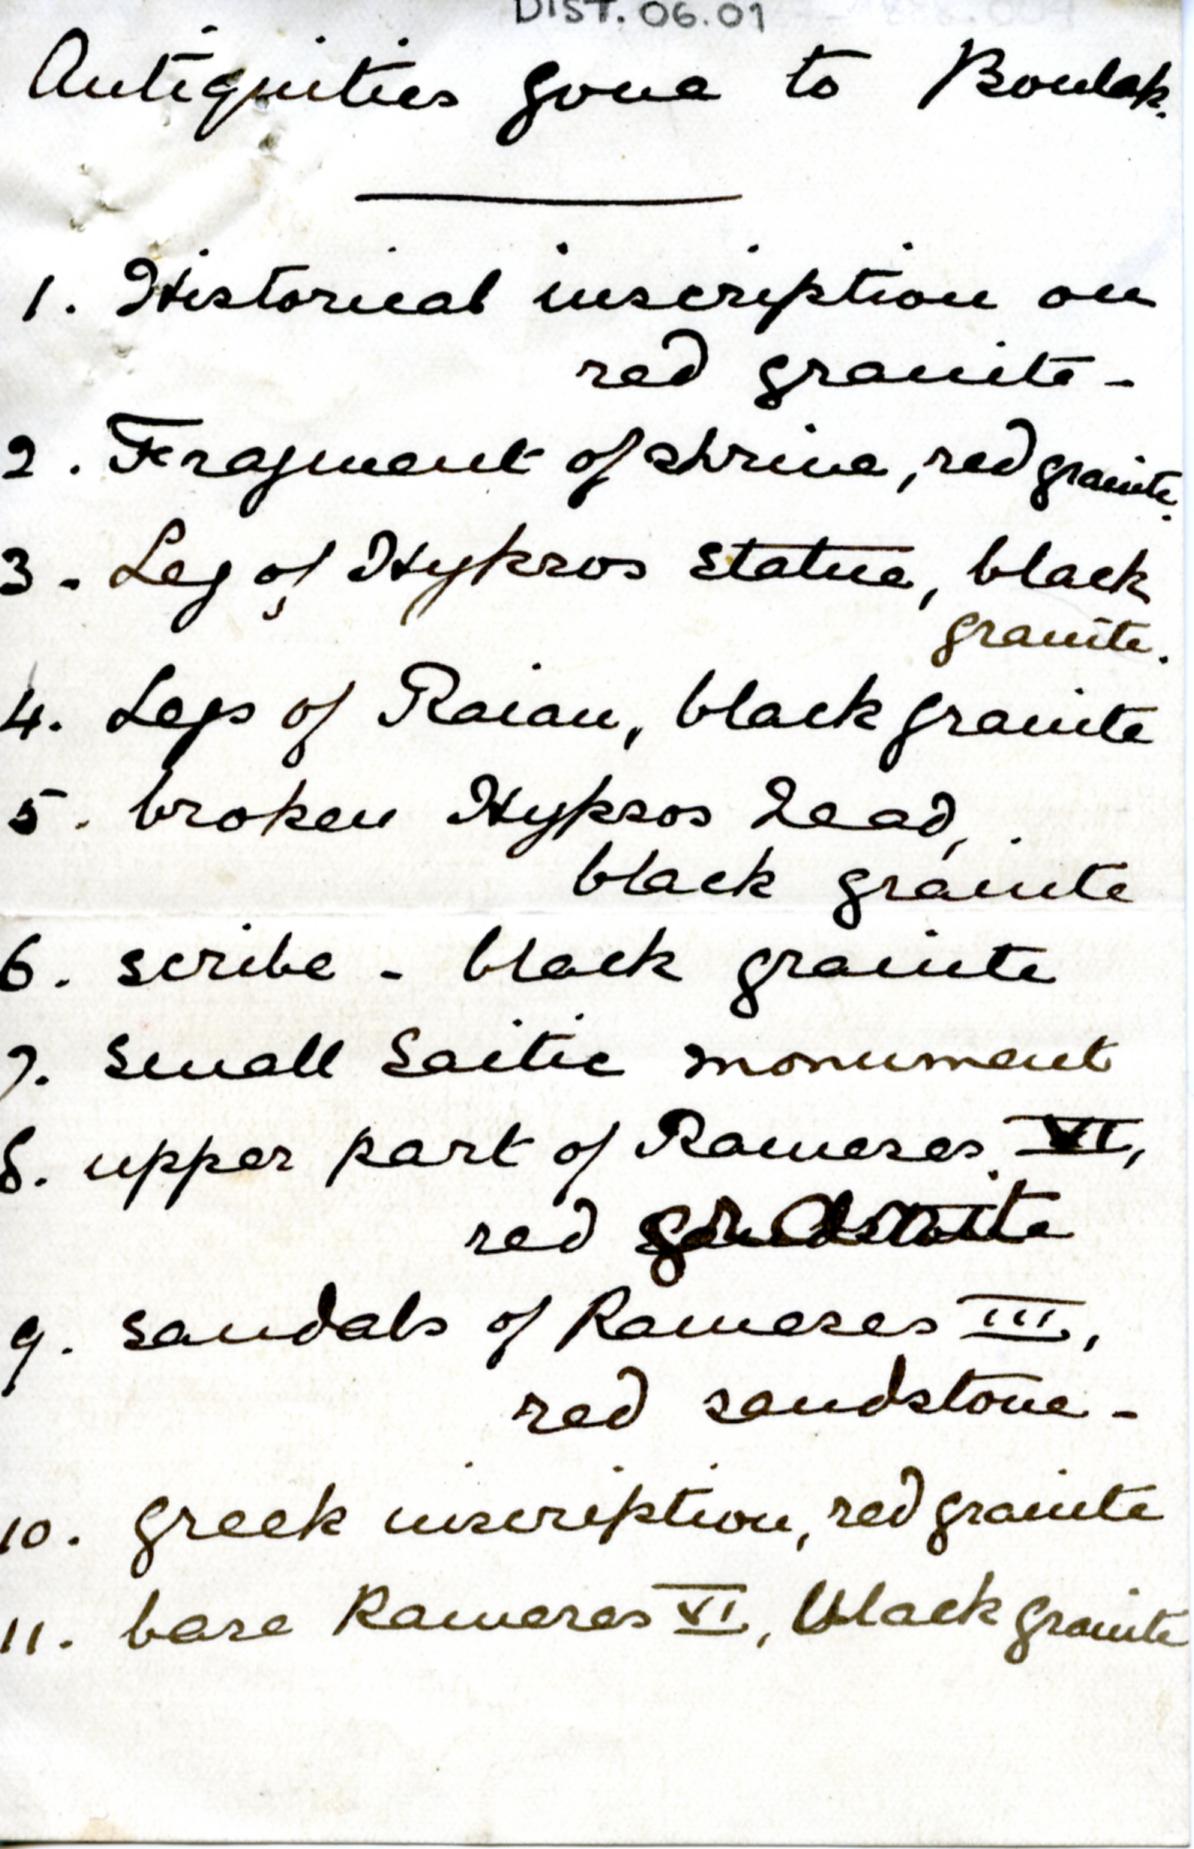 DIST. 06.01
Antiquities gone to Boulak.
1. Historical inscription on
red granite -
2. Fragment of shrine, red granite.
3. Leg of Hyksos statue, black
granite.
4. Legs of Raian, black granite
5. broken Hyksos head,
black granite
6. scribe - black granite
7. small Saitic monument
8. upper part of Rameses VI,
red
9. sandals of Rameses III,
red sandstone -
10. greek inscription, red granite
11. base Rameses VI, black granite